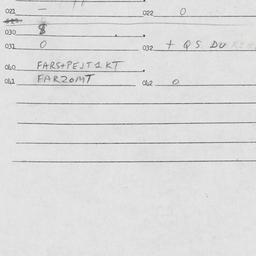 021 — 022 0
030 $
031 0 032 + Q5 DU
060 FARS+PEJT1KT
061 FARZOMT 062 0